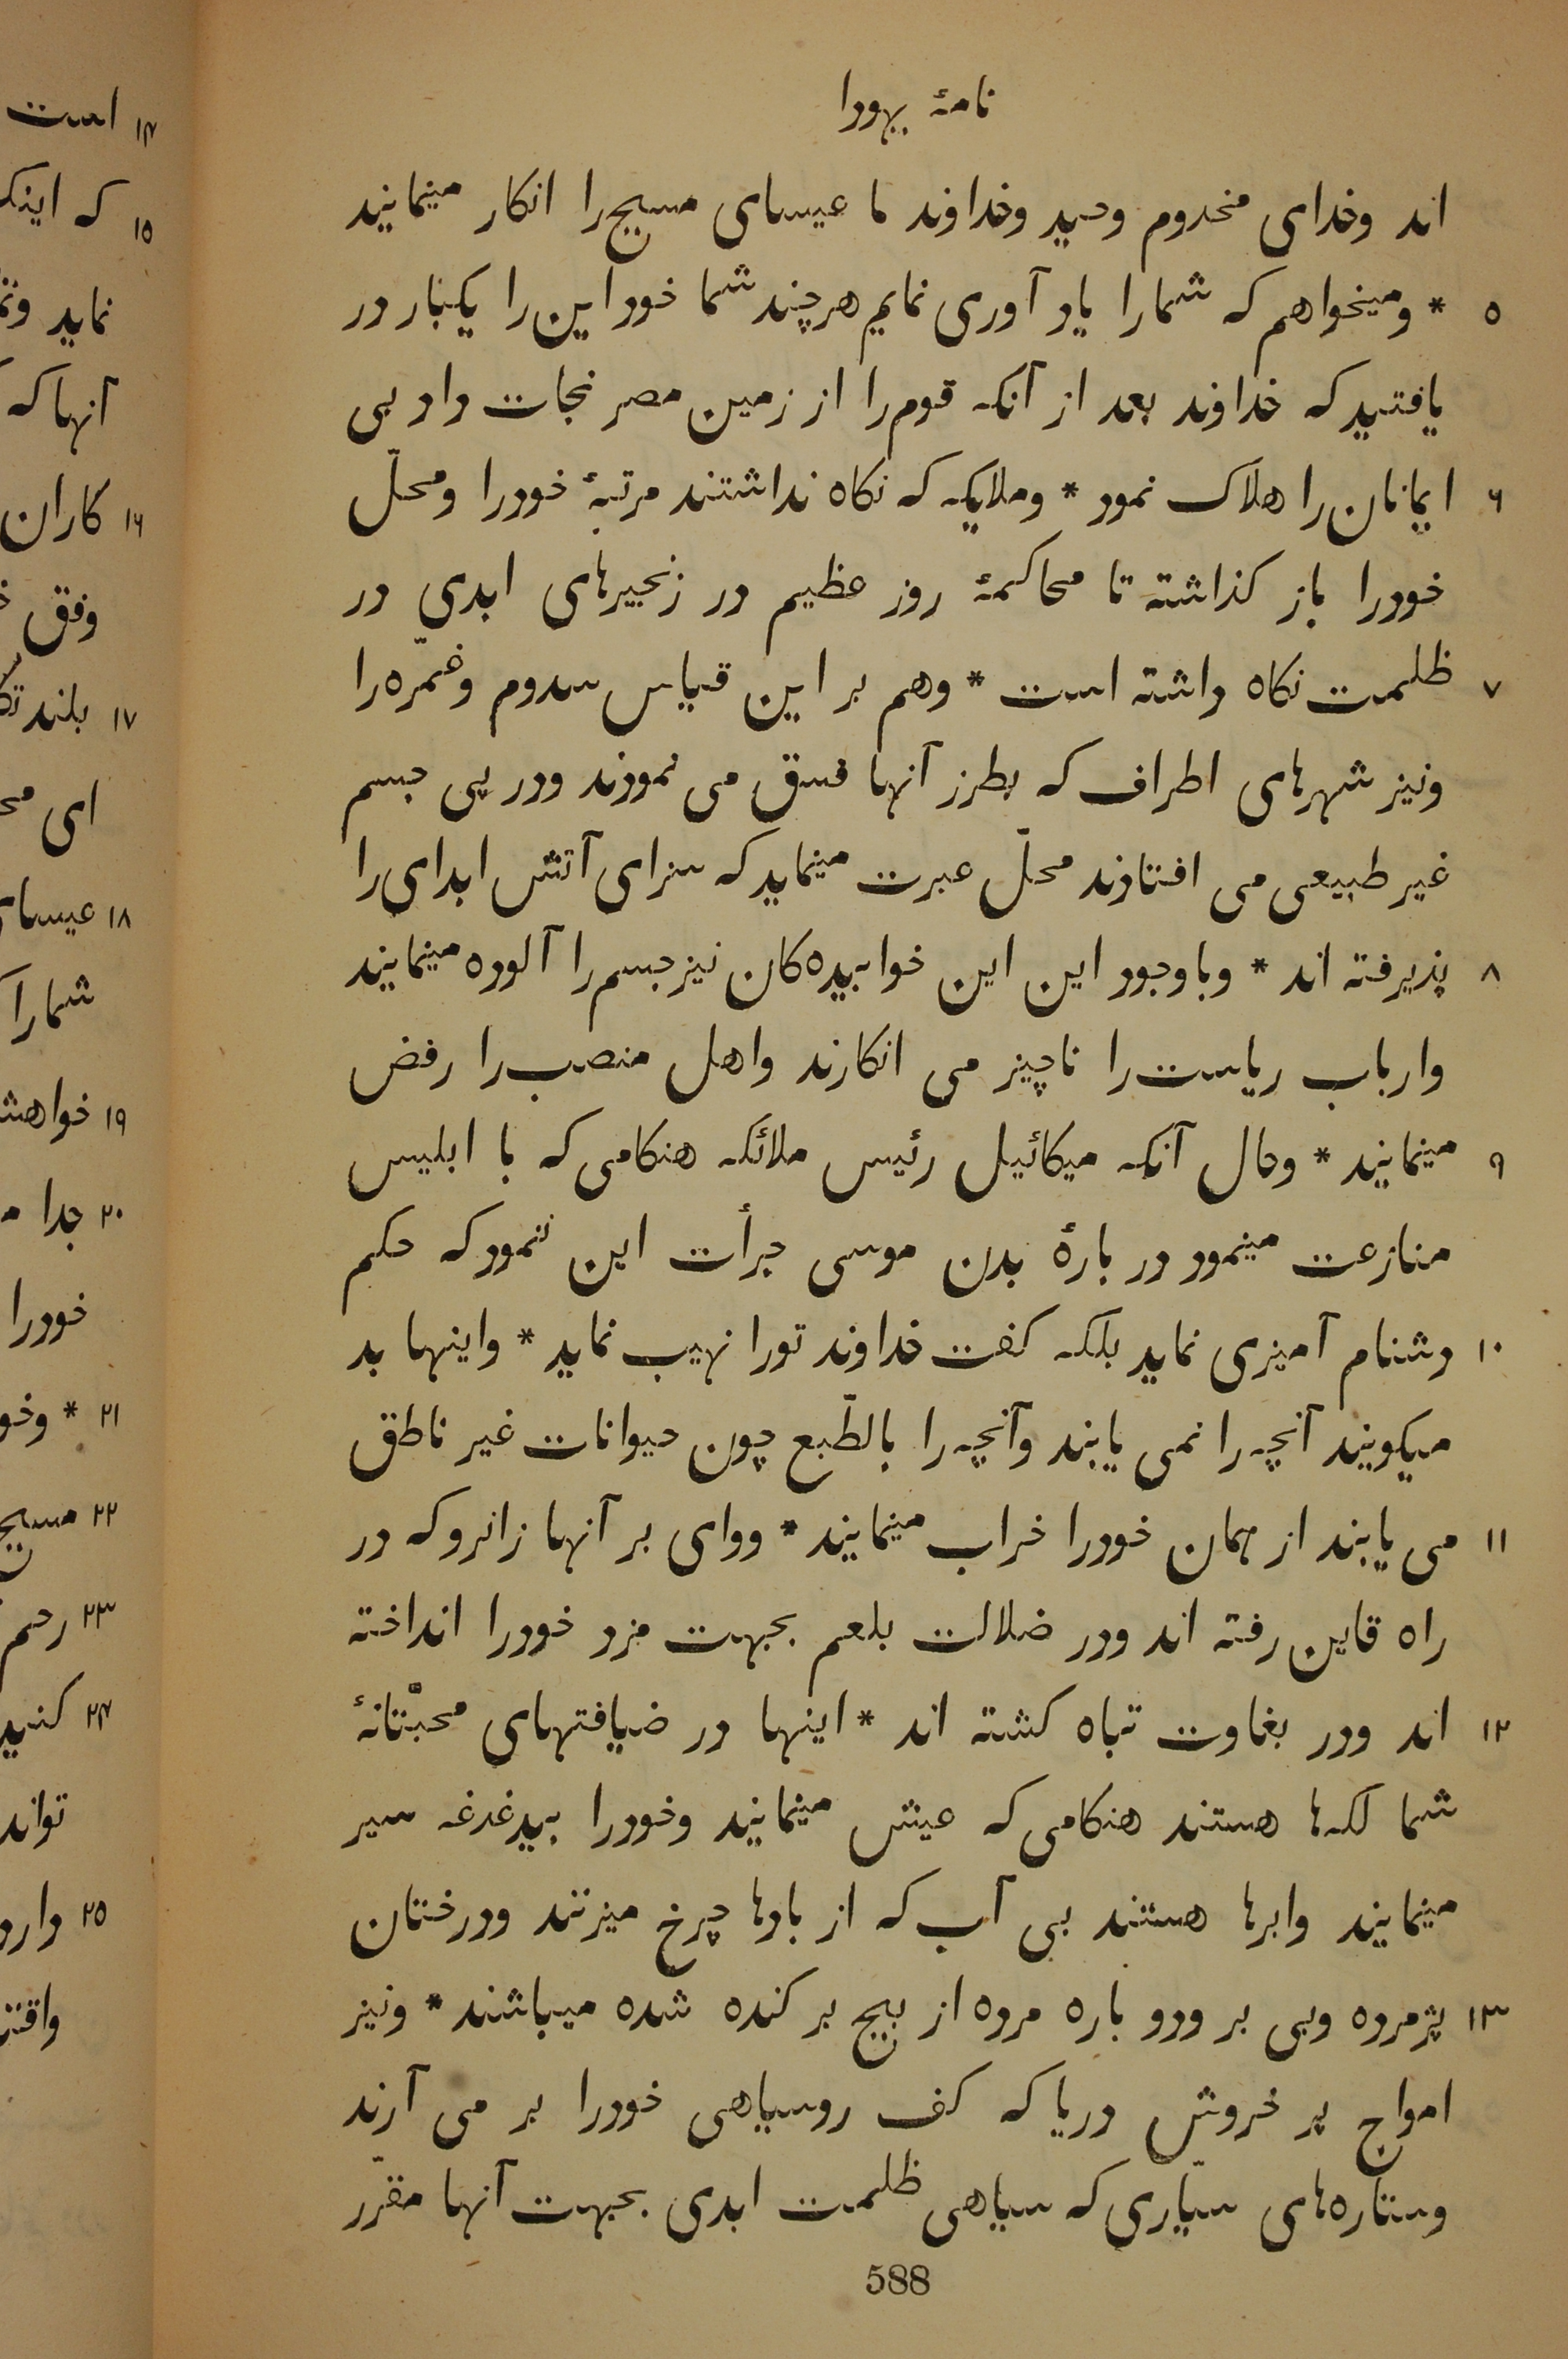 نامهٔ یهودا
اند وخدای مخدوم وحید وخداوند ما عیسای مسیح را انکار مینمایند
۵ * ومیخواهم که شمارا یاد آوری نمایم هرچند شما خود این را یکبار در
یافتید که خداوند بعد از آنکه قوم را از زمین مصر نجات داد بی
۶ ایمانان را هلاک نمود * وملایکه که نکاه نداشتند مرتبهٔ خودرا ومحلّ
خودرا باز کذاشته تا محاکمهٔ روز عظیم در زنجیرهای ابدی در
۷ ظلمت نکاه داشته است * وهم بر این قیاس سدوم وغمّره را
ونیز شهرهای اطراف که بطرز آنها فسق می نمودند ودر پی جسم
غیر طبیعی می افتادند محلّ عبرت مینماید که سزای آتش ابدای را
۸ پذیرفته اند * وباوجود این این خوابیده‌کان نیز جسم را آلوده مینمایند
وارباب ریاست را ناچیز می انکارند واهل منصب را رفض
۹ مینمایند * وحال آنکه میکائیل رئیس ملائکه هنکامی که با ابلیس
منازعت مینمود در بارهٔ بدن موسی جرأت این ننمود که حکم
۱۰ دشنام آمیزی نماید بلکه کفت خداوند تورا نهیب نماید * واینها بد
میکویند آنچه را نمی یابند وآنچه را بالطّبع چون حیوانات غیر ناطق
۱۱ می یابند از همان خودرا خراب مینمایند * ووای بر آنها زانرو که در
راه قاین رفته اند ودر ضلالت بلعم بجهت مزد خودرا انداخته
۱۲ اند ودر بغاوت تباه کشته اند * اینها در ضیافتهای محبّتانهٔ
شما لکه‌ها هستند هنکامی که عیش مینمایند وخودرا بیدغدغه سیر
مینمایند وابرها هستند بی آب که از بادها چرخ میزنند ودرختان
۱۳ پژمرده وبی بر ودو باره مرده از بیج بر کنده شده میباشند * ونیز
امواج پر خروش دریا که کف روسیاهی خودرا بر می آرند
وستاره‌های سیّاری که سیاهی ظلمت ابدی بجهت آنها مقرّر
588
۱۴ است
۱۵ که
نماید
آنها که
۱۶ کاران
وفق
۱۷ بلند
ای
۱۸
شمارا
۱۹
۲۰ جدا
خودرا
۲۱ *
۲۲ مسیح
۲۳ رحم
۲۴
۲۵